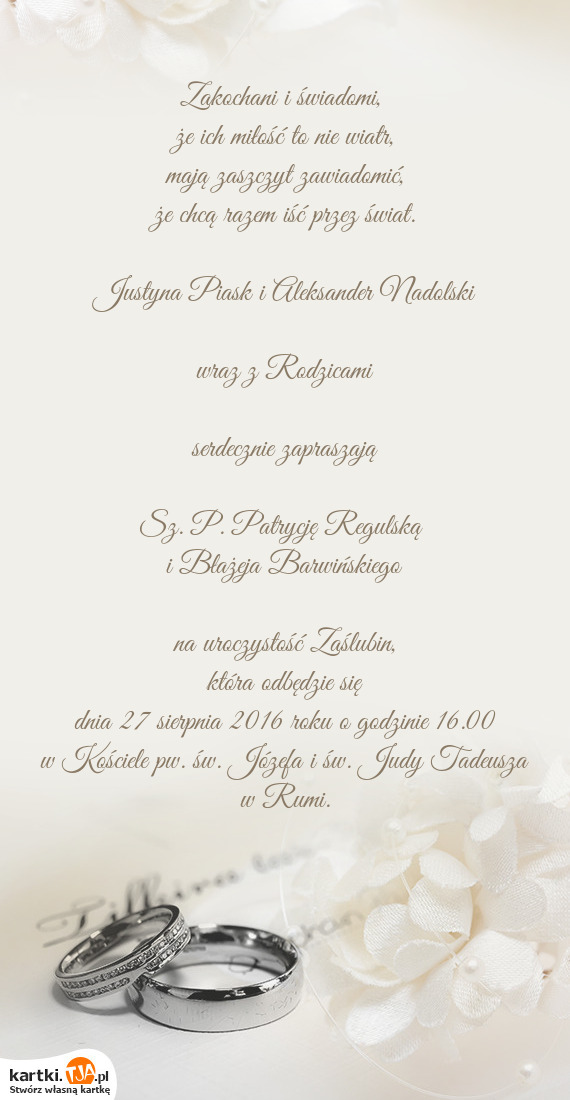 Zakochani i świadomi,
że ich miłość to nie wiatr,
mają zaszczyt zawiadomić,
że chcą razem iść przez świat.
Justyna Piask i Aleksander Nadolski
wraz z Rodzicami
serdecznie zapraszają
Sz. P. Patrycję Regulską
i Błażeja Barwińskiego
na uroczystość Zaślubin,
która odbędzie się
dnia 27 sierpnia 2016 roku o godzinie 16.00
w Kościele pw. św. Józefa i św. Judy Tadeusza
w Rumi.
kartki.TJA.pl
Stwórz własną kartkę